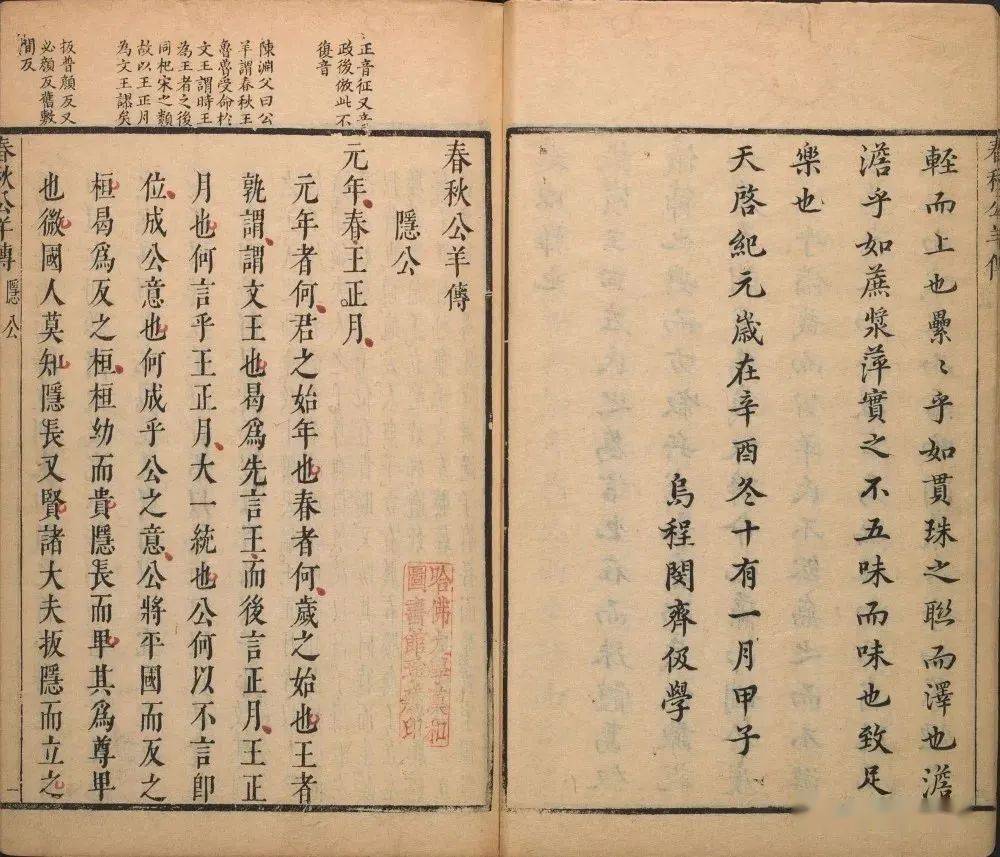 輕而上也纍〻乎如貫珠之聯而澤也澹
澹乎如蔗漿萍實之不五味而味也致足
樂也
天啓紀元歲在辛酉冬十有一月甲子
烏程閔齊伋學
正音征又音
政後倣此不
復音
陳淵父曰公
羊謂春秋王
魯魯受命於
文王謂時王
為王者之後
同杞宋之類
故以王正月
為文王謬矣
扳普顏反又
必顏反舊敷
間反
春秋公羊傳
隱公
元年春王正月
元年者何君之始年也春者何歲之始也王者
孰謂謂文王也曷爲先言王而後言正月王正
月也何言乎王正月大一統也公何以不言卽
位成公意也何成乎公之意公將平國而反之
桓曷爲反之桓桓幼而貴隱長而卑其爲尊卑
也微國人莫知隱長又賢諸大夫扳隱而立之
春秋公羊傳 隱公 一
哈佛大
圖書館珍藏印